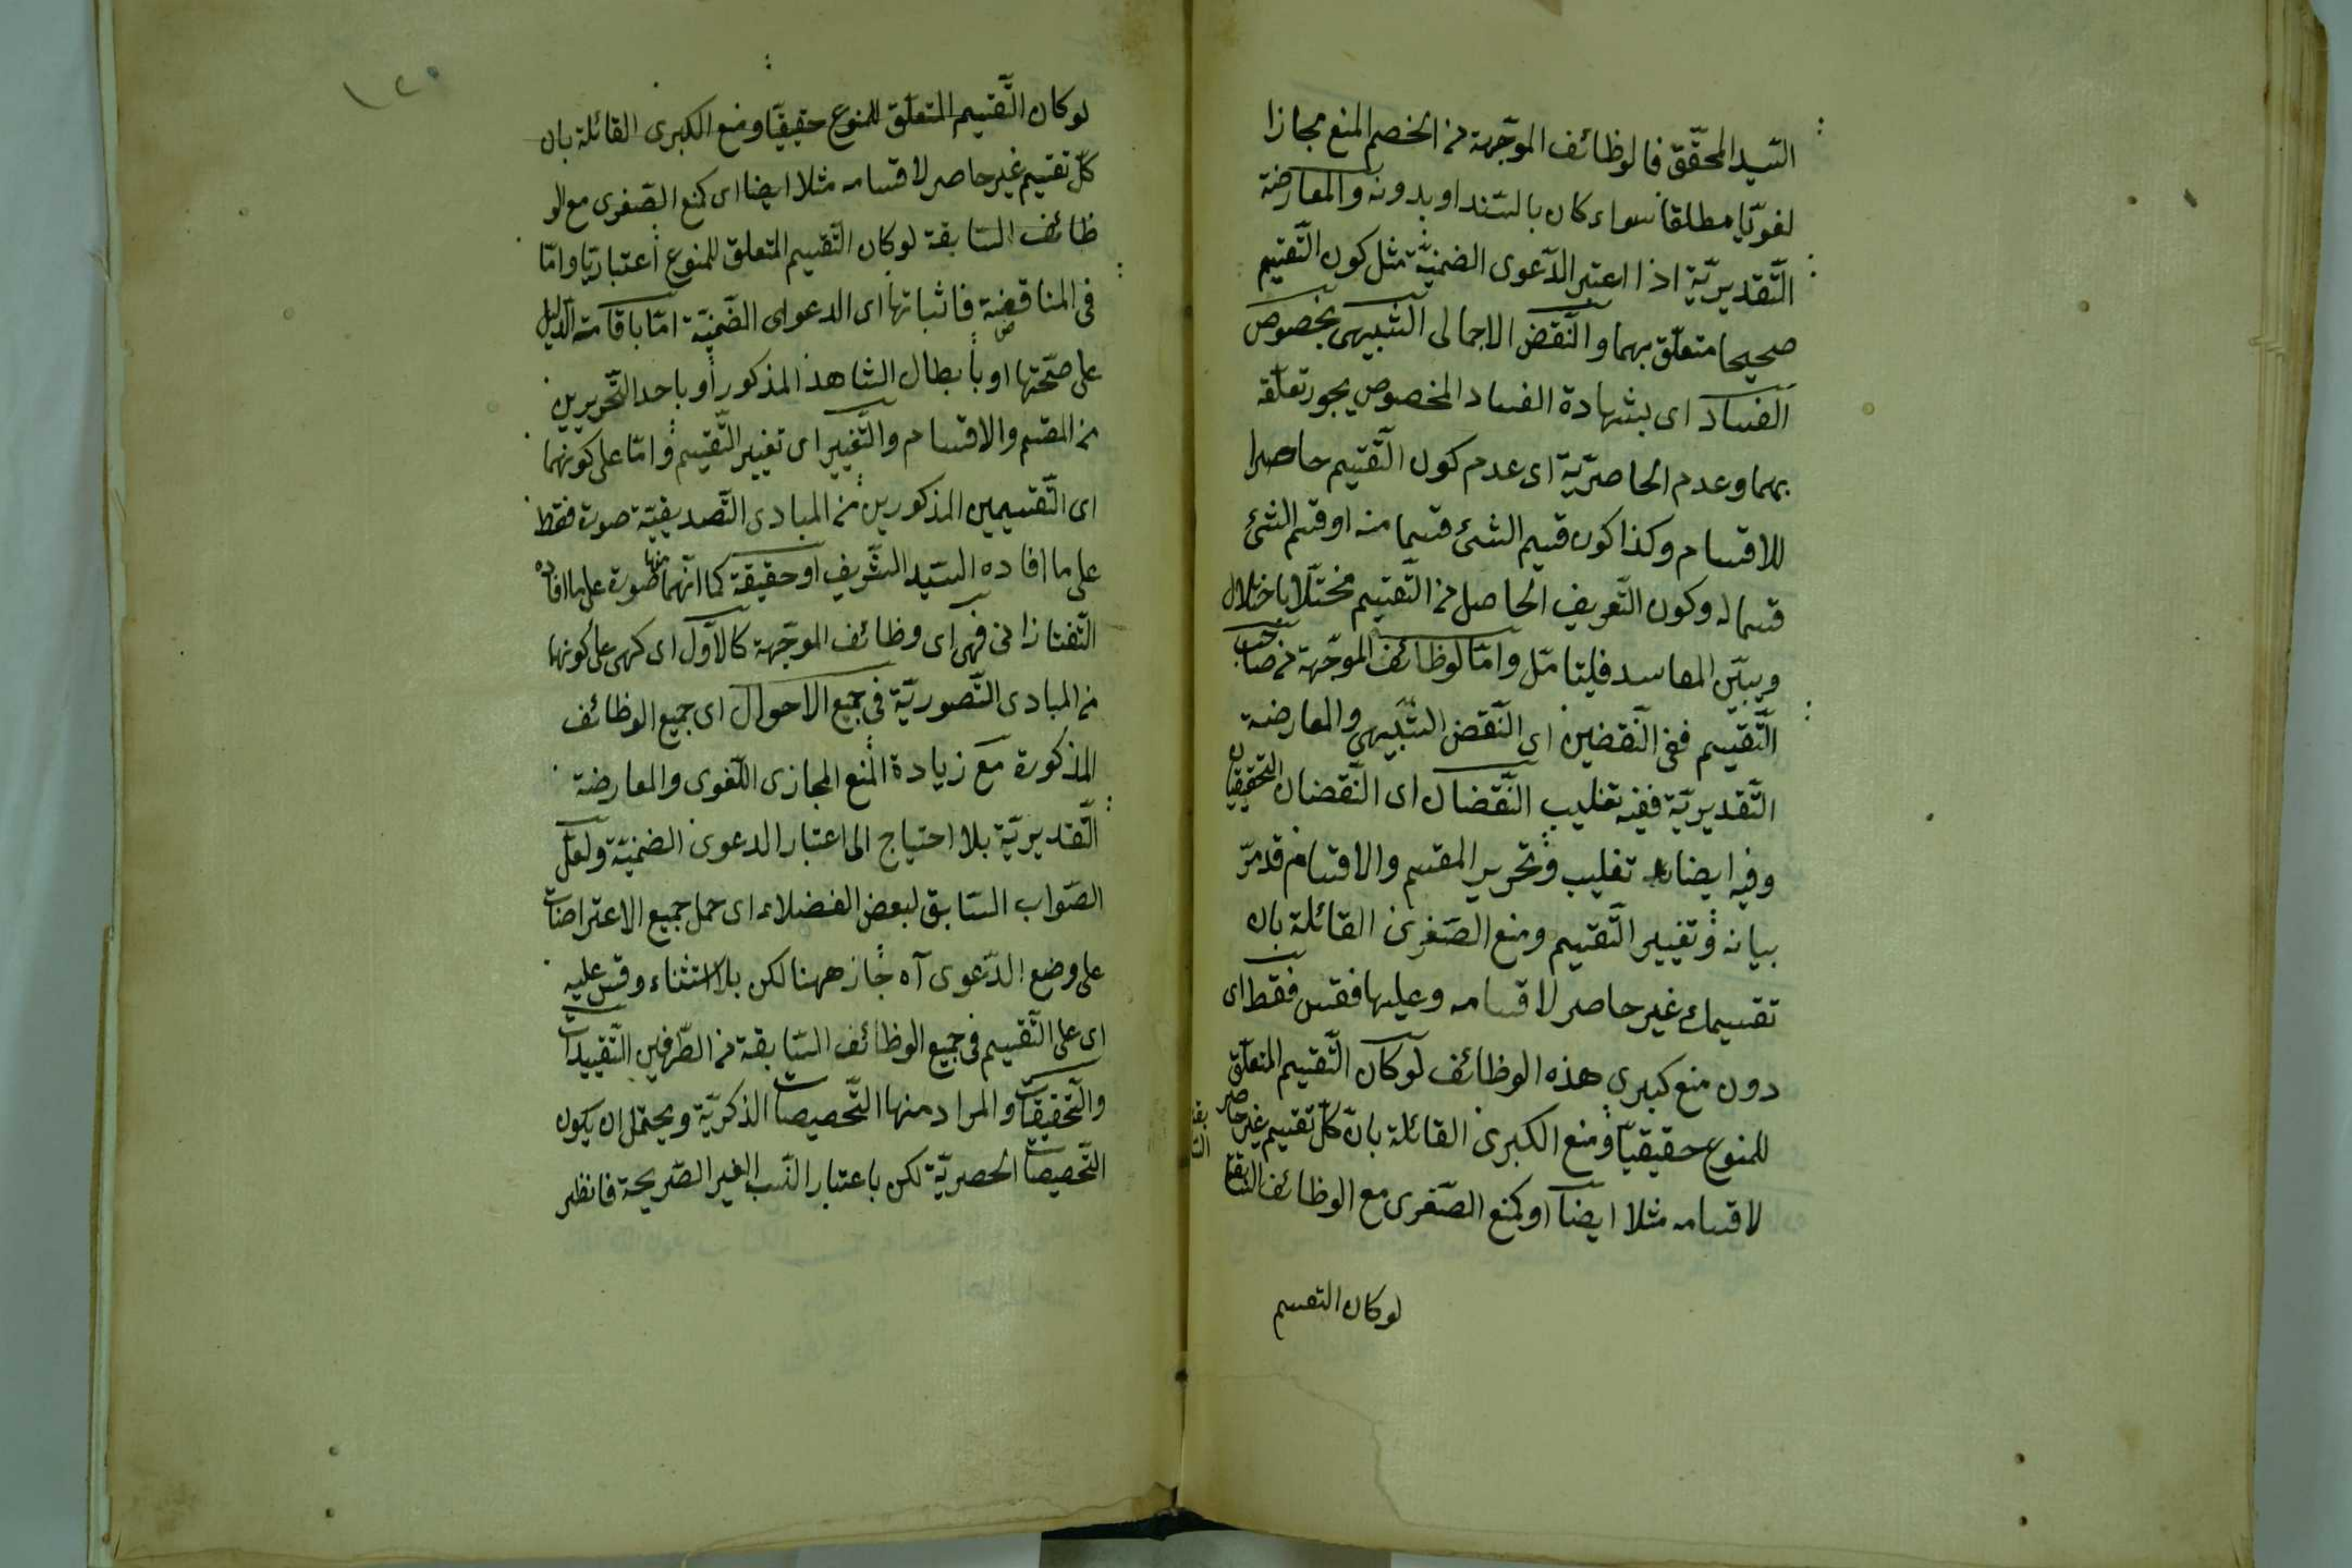 السّيد المحقّق فالوظائف الموجّهة من الخصم المنع مجازا
لغويّا مطلقا سواء كان بالسّند او بدونه والمعارضة
التّقديريّة اذا اعتبر الدّعوى الضمنيّة مثل كون التّقسيم
صحيحا متعلّق بهما والنّقض الاجمالى الشّبيهى بخصوص
الفساد اى بشهادة الفساد المخصوص يجوز تعلّقه
بهما وعدم الحاصريّة اى عدم كون التّقسيم حاصرا
للاقسام وكذا كون قسيم الشئ قسما منه او قسم الشئ
قسيما له وكون التّعريف الحاصل من التّقسيم مختلّا باختلال
ويبيّن المفاسد فليتامّل وامّا لوظائف الموجّهة من صاحب
التّقسيم ففى النّقضين اى النّقض الشّبيهى والمعارضة
التّقديريّة ففيه تغليب النّقضان اى النّقضان التحقيقيان
وفيه ايضا تغليب وتحرير المقسم والاقسام قد مرّ
بيانه وتغيير التّقسيم ومنع الصّغرى القائلة بان
تقسيمك غير حاصر لاقسامه وعليها فقس فقط اى
دون منع كبرى هذه الوظائف لو كان التّقسيم المتعلّق
للمنوع حقيقيّا ومنع الكبرى القائلة بانّ كلّ تقسيم غير حاصر
لاقسامه مثلا ايضا او كمنع الصّغرى مع الوظائف السّابقة
لو كان التقسيم
لو كان التّقسيم المتعلّق للمنوع حقيقيّا ومنع الكبرى القائلة بان
كلّ تقسيم غير حاصر لاقسامه مثلا ايضا اى كمنع الصّغرى مع الو
ظائف السّابقة لو كان التّقسيم المتعلق للمنوع اعتباريّا وامّا
فى المناقضة فاثباتها اى الدعوى الضّمنيّة امّا باقامة الدّليل
على صحّتها او بابطال الشاهد المذكور او باحد التّحريرين
من المقسم والاقسام والتّغيير اى تغيير التّقسيم وامّا على كونهما
اى التّقسيمين المذكورين من المبادى التّصديقيّة صورة فقط
على ما افاده السّيد الشّريف او حقيقة كما انّهما منها صورة على ما افاده
التّفتازانى فهى اى وظائف الموجّهة كالاوّل اى كهى على كونهما
من المبادى التّصوريّة فى جميع الاحوال اى جميع الوظائف
المذكورة مع زيادة المنع المجازى اللّغوى والمعارضة
التّقديريّة بلا احتياج الى اعتبار الدعوى الضمنيّة ولعلّ
الصّواب السّابق لبعض الفضلاء اى حمل جميع الاعتراضات
على وضع الدّعوى آه جاز ههنا لكن بلا استثناء وقس عليه
اى على التّقسيم فى جميع الوظائف السّابقة من الطّرفين التّقييدات
والتّحقيقات والمراد منها التّخصيصات الذكريّة ويحتمل ان يكون
التّخصيصات الحصريّة لكن باعتبار النّسب الغير الصّريحة فانظر